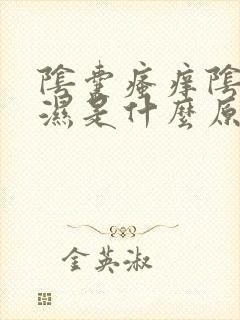 陰囊瘙痒陰
濕是什麼原
金英淑